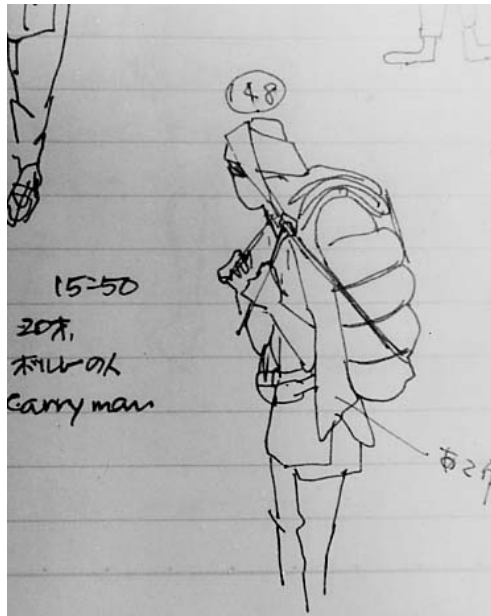 148
15=50
20才,
ボルレーの人
carry man